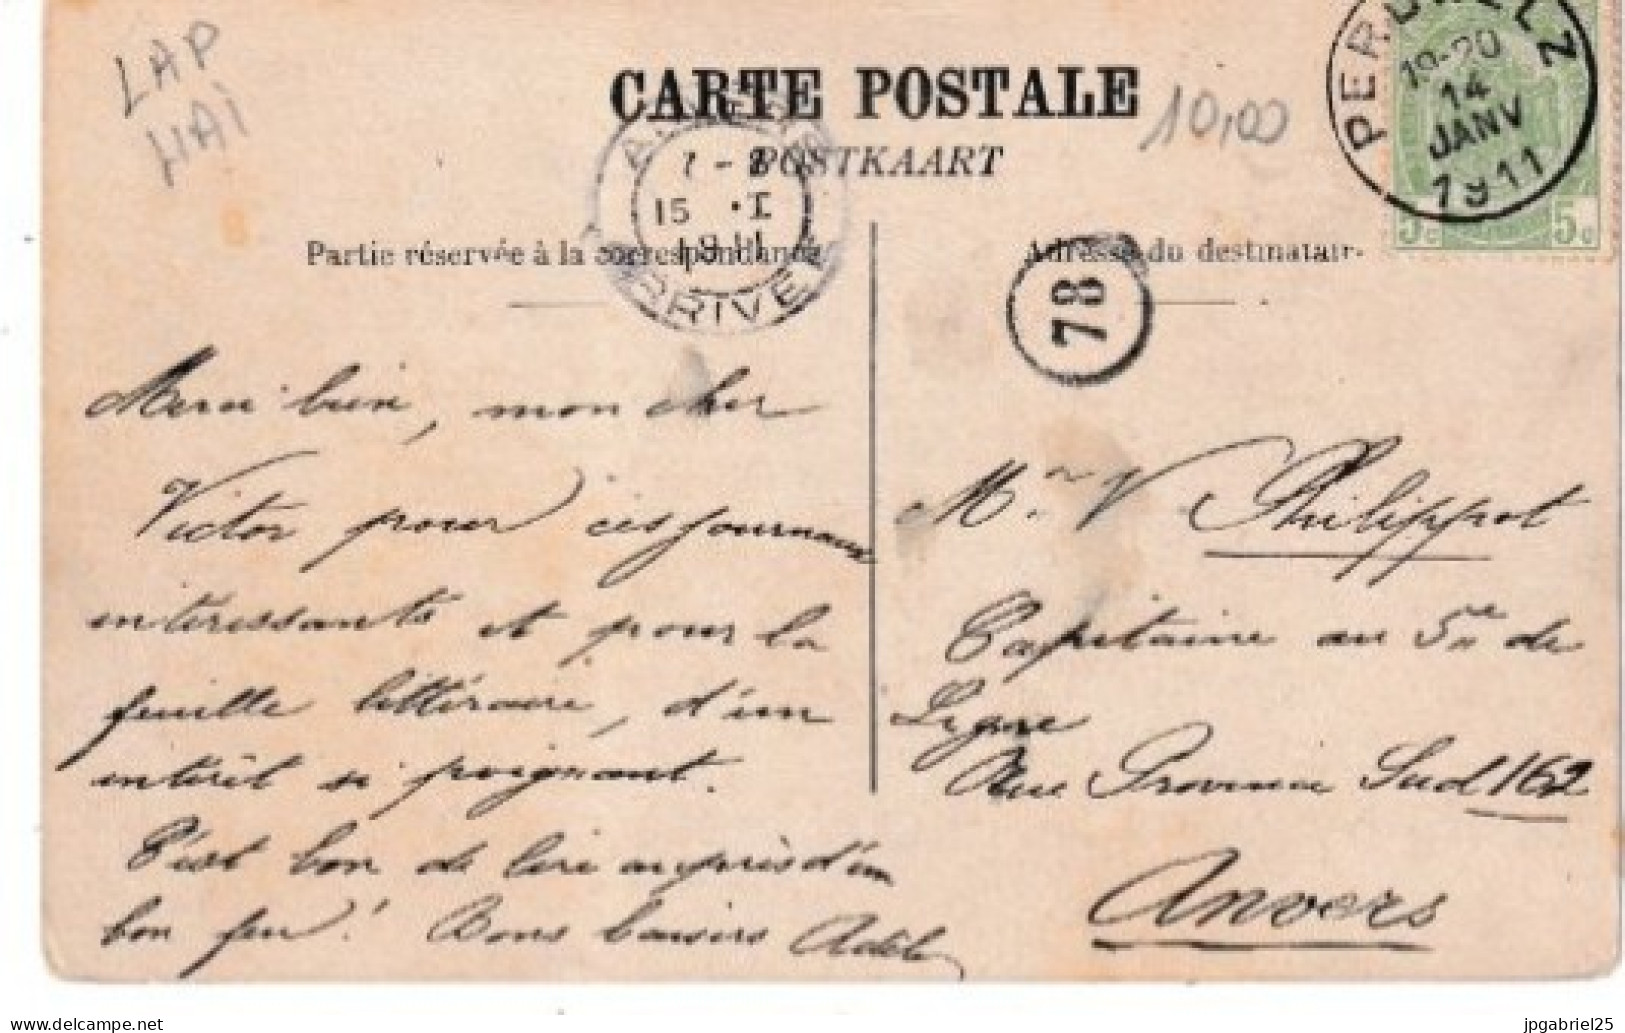 LAP
HAI
CARTE POSTALE
POSTKAART
10,00
PERUWELZ
19-20
14
JANV
1911
5c 5c
ANVERS
7-8
15 .I
1911
ARRIVEE
Partie réservée à la correspondance
Adresse du destinatair
78
Merci bien, mon cher
Victor pour ces journaux
intéressants et pour la
feuille littéraire, d'un
intérêt si poignant.
C'est bon de lire auprès d'un
bon feu! Bons baisers Adèle
Mr V Philippot
Capitaine au 5e de
Ligne
Rue Province Sud 162
Anvers
https://www.delcampe.net
jpgabriel25